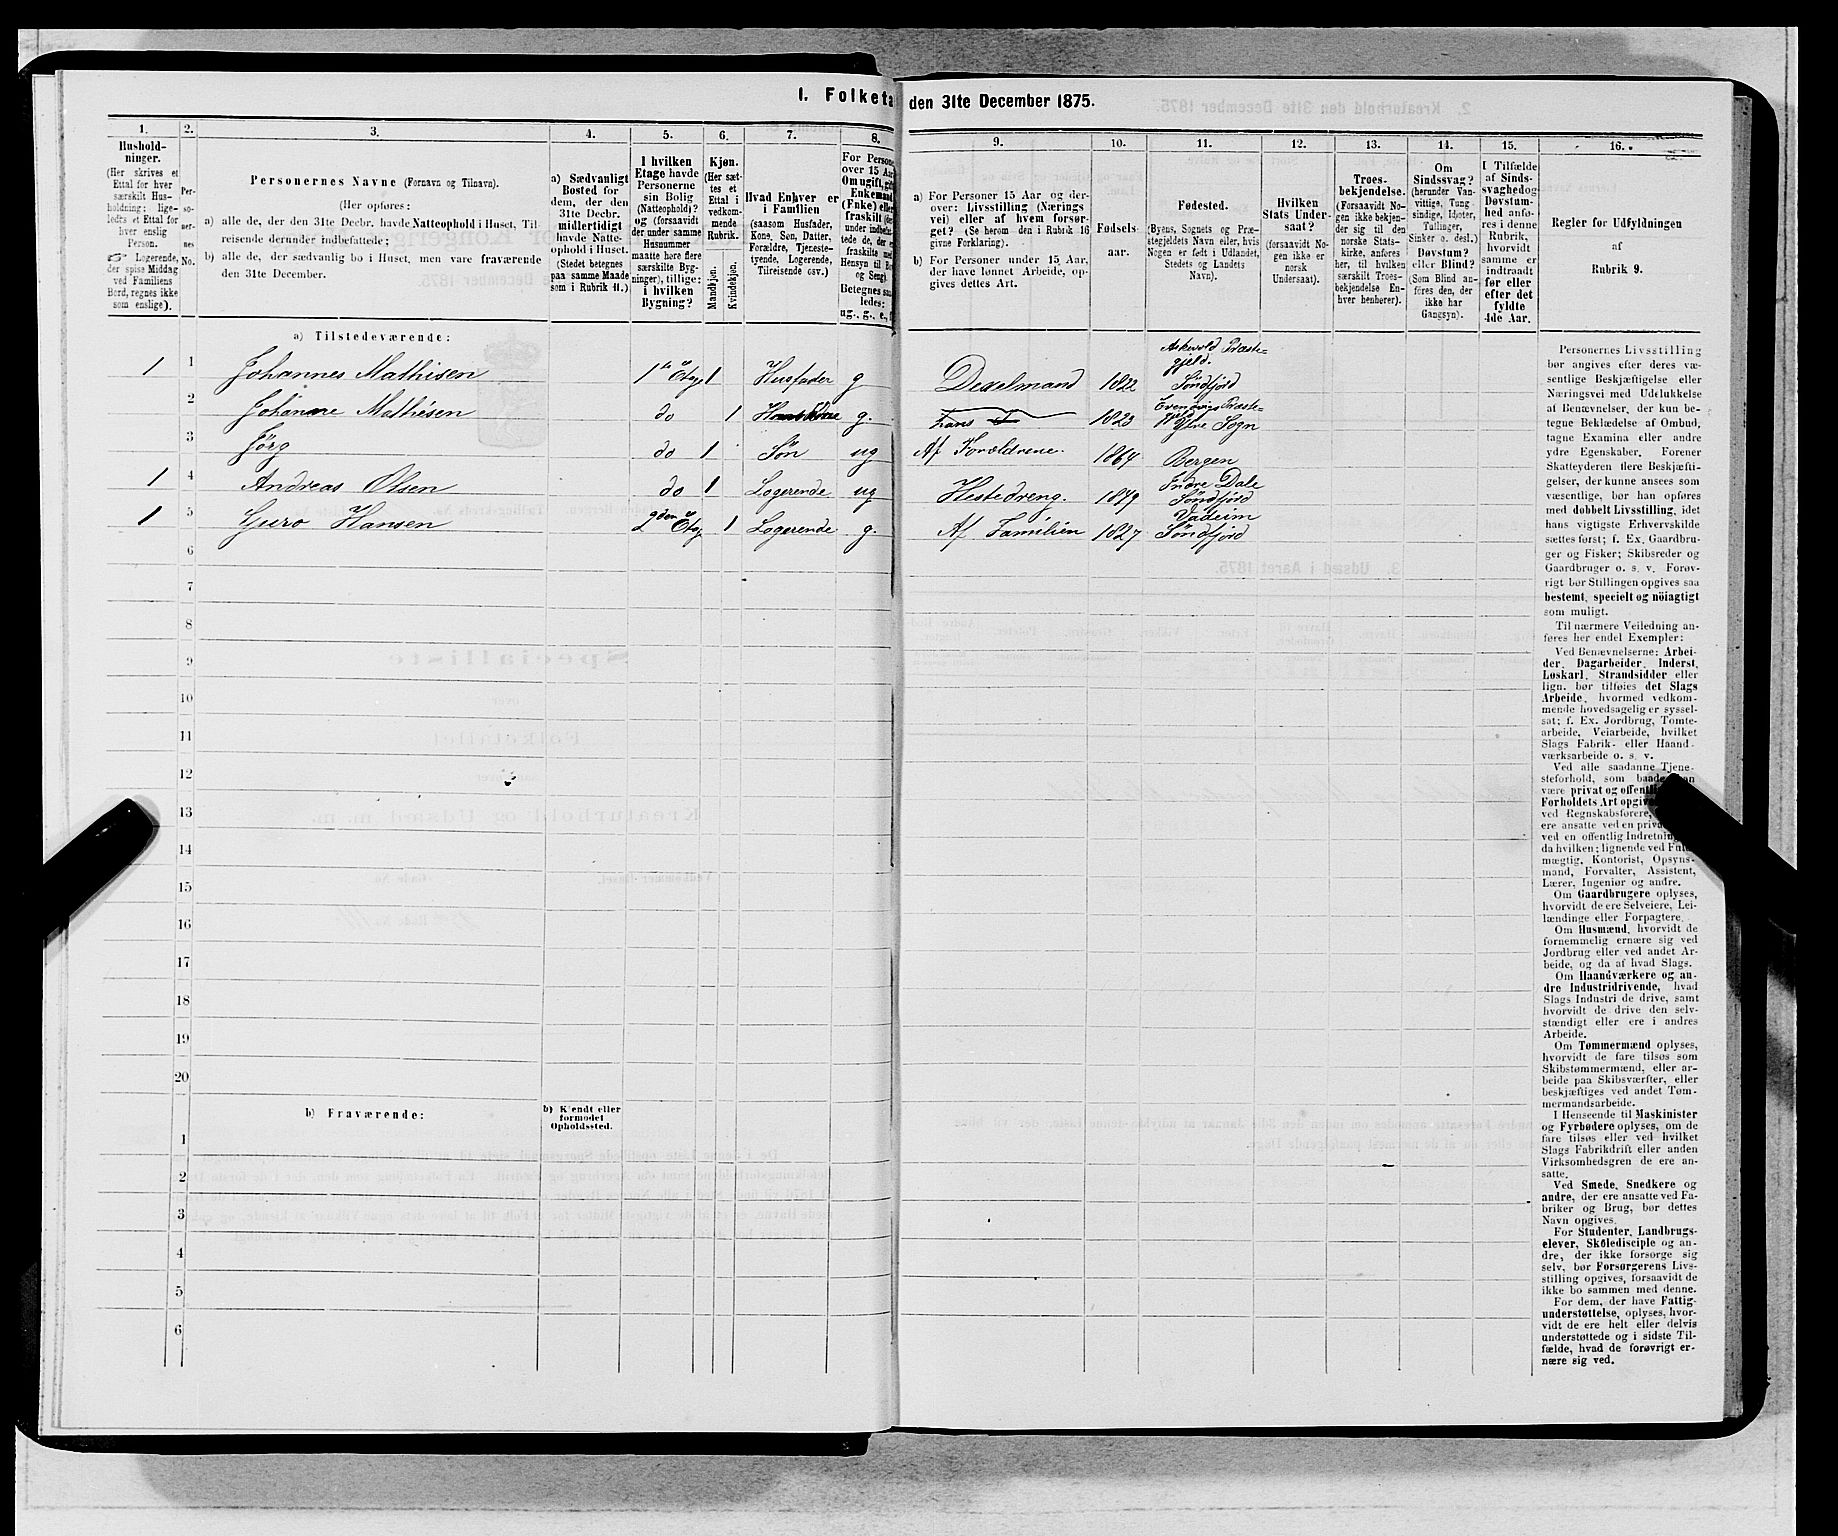 1. Folketa den 31te December 1875.
1. 2. 3. 4. 5. 6. 7. 8. 9. 10. 11. 12. 13. 14. 15. 16.
Hushold-
ninger.
(Her skrives et
Ettal for hver
særskilt Hus-
holdning; lige-
ledes et Ettal for
hver enslig
Person.
Logerende,
der spise Middag
ved Familiens
Bord, regnes ikke
som enslige).
Per-
so-
ner-
nes
No.
Personernes Navne (Fornavn og Tilnavn).
(Her opføres:
a) alle de, der den 31te Decbr. havde Natteophold i Huset, Til
reisende derunder indbefattede;
b) alle de, der sædvanlig bo i Huset, men vare fraværende
den 31te December.
a) Sædvanligt
Bosted for
dem, der den
31te Decbr.
midlertidigt
havde Natte-
ophold i Huset.
(Stedet betegnes
paa samme Maade
som i Rubrik 11.)
I hvilken
Etage havde
Personerne
sin Bolig
(Natteophold)?
og (forsaavidt
der under samme
Husnummer
maatte høre flere
særskilte Byg-
ninger), tillige:
i hvilken
Bygning?
Kjøn.
(Her sæt-
tes et
Ettal i
vedkom-
mende
Rubrik.
Mandkjøn.
Kvindekjøn.
Hvad Enhver er
i Familien
(saasom Husfader,
Kone, Søn, Datter,
Forældre, Tjeneste-
tyende, Logerende,
Tilreisende osv.)
For Persone
over 15 Aa
Om ugift, gif
Enkemand
(Enke) elle
fraskilt (der
under indbefat-
tede de, der e
fraskilte med
Hensyn til Bo
og Seng).
Betegnes saa
ledes:
ug., g., e., f
a) For Personer 15 Aar og der-
over: Livsstilling (Nærings
vei) eller af hvem forsør-
get? (Se herom den i Rubrik 16
givne Forklaring).
b) For Personer under 15 Aar,
der have lønnet Arbeide, op-
gives dettes Art.
Fødsels-
aar.
Fødested.
(Byens, Sognets og Præ-
stegjeldets Navn eller, hvis
Nogen er født i Udlandet,
Stedets og Landets
Navn).
Hvilken
Stats Under-
saat?
(forsaavidt No-
gen ikke er
norsk
Undersaat).
Troes-
bekjendelse.
(Forsaavidt No-
gen ikke bekjen-
der sig til den
norske Stats-
kirke, anføres
her, til hvilken
særskilt Troes-
bekjendelse En-
hver henhører).
Om
Sindssvag?
(herunder Van-
vittige, Tung-
sindige, Idioter,
Tullinger,
Sinker o. desl.)
Døvstum?
eller Blind?
(Som Blind an-
føres den, der
ikke har
Gangsyn).
I Tilfælde
af Sinds-
svaghed og
Døvstum-
hed anfø-
res i denne
Rubrik,
hvorvidt
samme er
indtraadt
før eller
efter det
fyldte
4de Aar.
Regler for Udfyldningen
af
Rubrik 9.
a) Tilstedeværende:
1 1 Johannes Mathisen 1ste Etag 1 Husfader g Dexelmand 1822 Askevold Præste-
gjeld.
Søndfjord
2 Johanne Mathisen do 1 g. 1823 Præste-
Ytre Sogn
3 Jörg do 1 Søn ug Af Forældrene 1864 Bergen
1 4 Andreas Olsen do 1 Logerende ug Hestedreng. 1849 Indre Dale
Søndfjord
1 5 Guro Hansen 2den Etag 1 Logerende g. Af Familien 1827 Vadeim
Søndfjord
6
7
8
9
10
11
12
13
14
15
16
17
18
19
20
b) Fraværende:
b) Kjendt eller
formodet
Opholdssted.
1
2
3
4
5
6
Personernes Livsstilling
bør angives efter deres væ-
sentlige Beskjæftigelse eller
Næringsvei med Udelukkelse
af Benævnelser, der kun be-
tegne Beklædelse af Ombud,
tagne Examina eller andre
ydre Egenskaber. Forener
Skatteyderen flere Beskjæfti-
gelser, der kunne ansees som
væsentlige, bør han opføres
med dobbelt Livsstilling, idet
hans vigtigste Erhvervskilde
sættes først; f. Ex. Gaardbru-
ger og Fisker; Skibsreder og
Gaardbruger o. s. v. Forøv-
rigt bør Stillingen opgives saa
bestemt, specielt og nöiagtigt
som muligt.
Til nærmere Veiledning an-
føres her endel Exempler:
Ved Benævnelserne: Arbei-
der, Dagarbeider, Inderst,
Løskarl, Strandsidder eller
lign. bør tilføies det Slags
Arbeide, hvormed vedkom-
mende hovedsagelig er syssel-
sat; f. Ex. Jordbrug, Tomte-
arbeide, Veiarbeide, hvilket
Slags Fabrik- eller Haand-
værksarbeide o. s. v.
Ved alle saadanne Tjene-
steforhold, som baade kan
være privat og offentli
Forholdets Art opgiv
ved Regnskabsførere,
ere ansatte ved en priva
ved en offentlig Indretning
da hvilken; lignende ved Ful
mægtig, Kontorist, Opsyns-
mand, Forvalter, Assistent,
Lærer, Ingeniør og andre.
Om Gaardbrugere oplyses,
hvorvidt de ere Selveiere, Lei-
lændinge eller Forpagtere.
Om Husmænd, hvorvidt de
fornemmelig ernære sig ved
Jordbrug eller ved andet Ar-
beide, og da af hvad Slags.
Om Haandværkere og an-
dre Industridrivende, hvad
Slags Industri de drive, samt
hvorvidt de drive den selv-
stændigt eller ere i andres
Arbeide.
Om Tømmermænd oplyses,
hvorvidt de fare tilsøs som
Skibstømmermænd, eller ar-
beide paa Skibsværfter, eller
beskjæftiges ved andet Tøm-
mermandsarbeide.
I Henseende til Maskinister
og Fyrbødere oplyses, om de
fare tilsøs eller ved hvilket
Slags Fabrikdrift eller anden
Virksomhedsgren de ere an-
satte.
Ved Smede, Snedkere og
andre, der ere ansatte ved Fa-
briker og Brug, bør dettes
Navn opgives.
For Studenter, Landbrugs-
elever, Skoledisciple og an-
dre, der ikke forsørge sig
selv, bør Forsørgerens Livs-
stilling opgives, forsaavidt de
ikke bo sammen med denne.
For dem, der have Fattig-
understøttelse, oplyses, hvor-
vidt de ere helt eller delvis
understøttede og i sidste Til-
fælde, hvad de forøvrigt er-
nære sig ved.